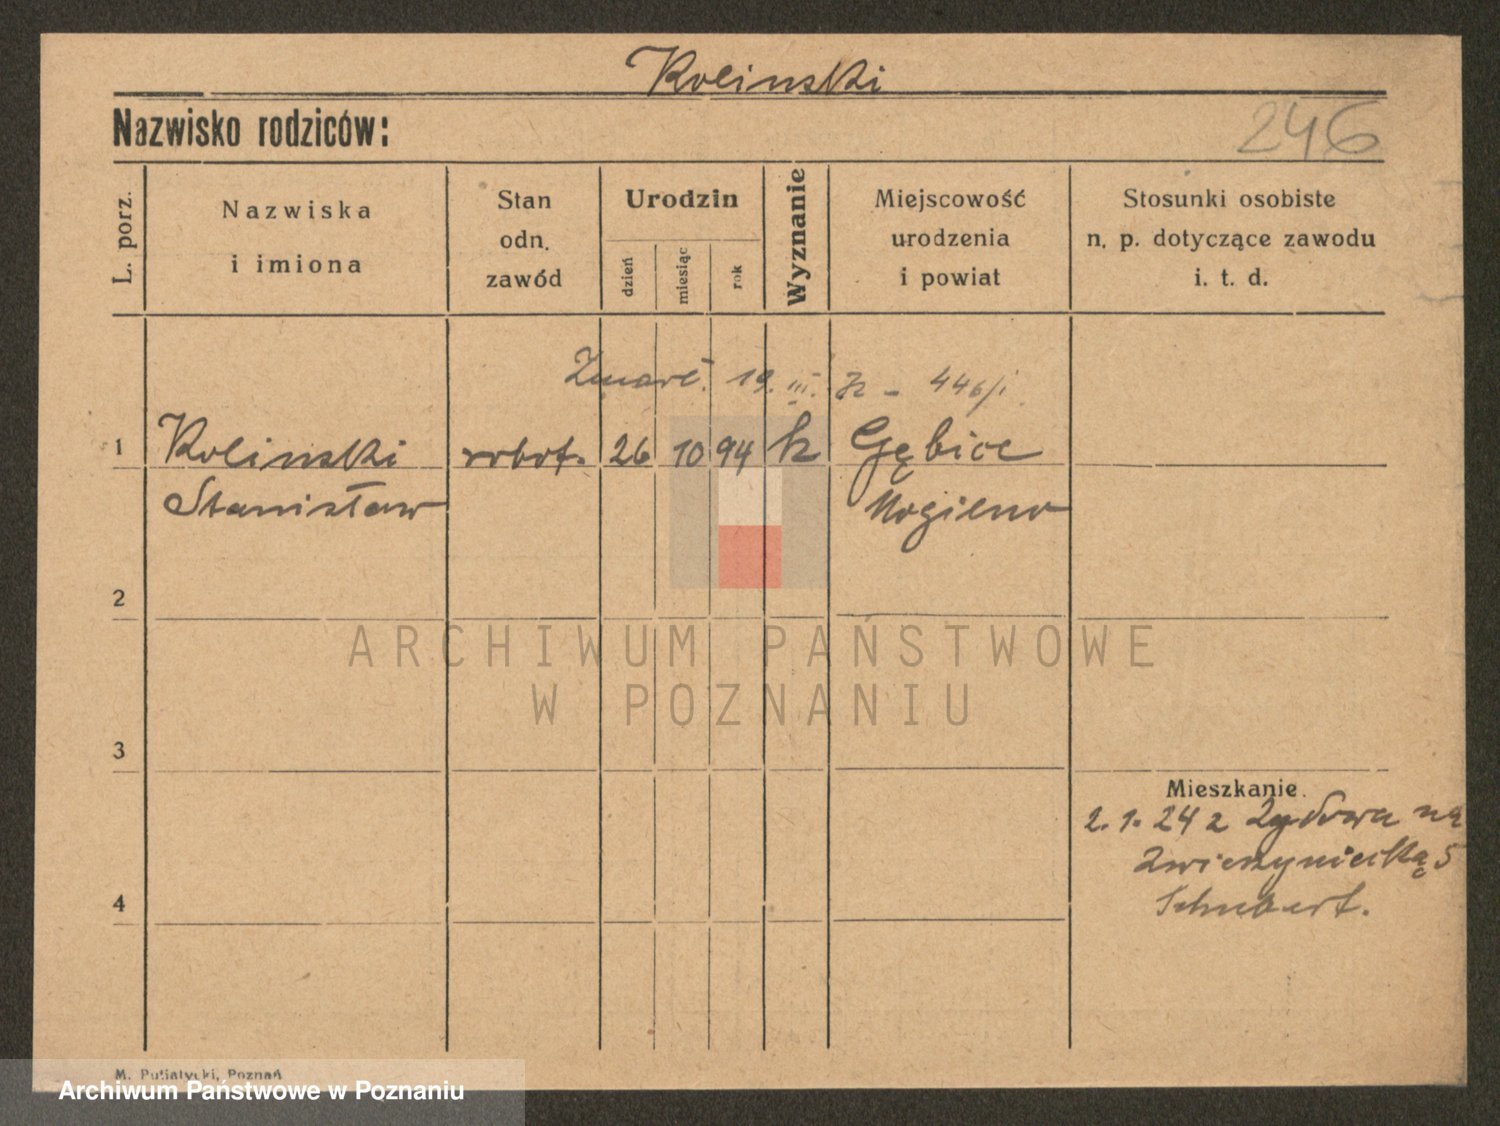 Kolinski
Nazwisko rodziców:
246
L. porz.
Nazwiska
i imiona
Stan
odn.
zawód
Urodzin
dzień
miesiąc
rok
Wyznanie
Miejscowość
urodzenia
i powiat
Stosunki osobiste
n. p. dotyczące zawodu
i. t. d.
Zmarł. 19. III. 446/i
1 Kolinski robot. 26 10 94 k Gębice
Stanisław Mogilno
2
ARCHIWUM PAŃSTWOWE
W POZNANIU
3
Mieszkanie.
2. 1. 24 z na
Zwierzyniecką 5
4
Schubert.
M. Putiatycki, Poznań
Archiwum Państwowe w Poznaniu